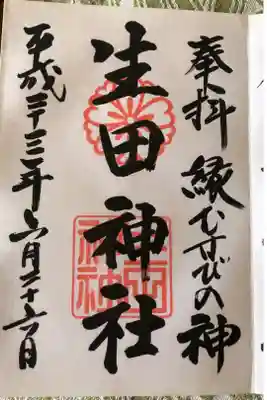 奉拝 縁むすびの神
生田神社
平成二十三年六月二十六日